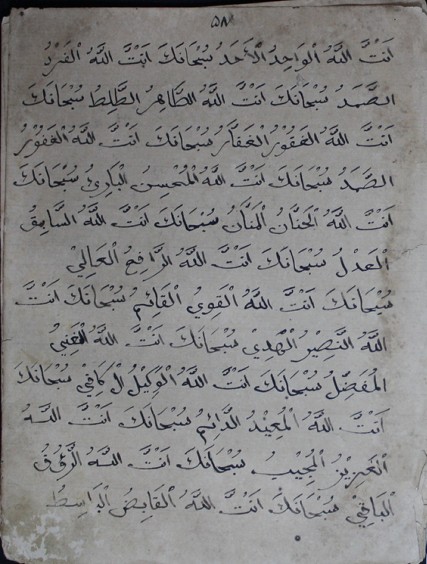 ٥٨
اَنْتَ اللّٰهُ الْوَاحِدُ الْاَحَدُ سُبْحَانَكَ اَنْتَ اللّٰهُ الْفَرْدُ
الصَّمَدُ سُبْحَانَكَ اَنْتَ اللّٰهُ الطَّاهِرُ سُبْحَانَكَ
اَنْتَ اللّٰهُ الْغَفُوْرُ الْغَفَّارُ سُبْحَانَكَ اَنْتَ اللّٰهُ الْغَفُوْرُ
الصَّمَدُ سُبْحَانَكَ اَنْتَ اللّٰهُ الْمُحْسِنُ الْبَارِئُ سُبْحَانَكَ
اَنْتَ اللّٰهُ الْحَنَّانُ الْمَنَّانُ سُبْحَانَكَ اَنْتَ اللّٰهُ
الْعَدْلُ سُبْحَانَكَ اَنْتَ اللّٰهُ الرَّافِعُ الْعَالِيْ
سُبْحَانَكَ اَنْتَ اللّٰهُ الْقَوِيُ الْقَائِمُ سُبْحَانَكَ اَنْتَ
اللّٰهُ النَّصِيْرُ الْهَدِيْ سُبْحَانَكَ اَنْتَ اللّٰهُ الْغَنِيْ
الْمُفَضِّلُ سُبْحَانَكَ اَنْتَ اللّٰهُ الْوَكِيْلُ الْكَافِيْ سُبْحَانَكَ
اَنْتَ اللّٰهُ الْمُعِيْدُ الدَّائِمُ سُبْحَانَكَ اَنْتَ اللّٰهُ
الْعَزِيْزُ الْمُجِيْبُ سُبْحَانَكَ اَنْتَ اللّٰهُ الرَّؤُفُ
الْبَاقِيْ سُبْحَانَكَ اَنْتَ اللّٰهُ الْقَابِضُ الْبَاسِطُ